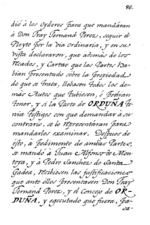 90.
dió à los Oydores para que mandáran
à Don Fray Fernand Perez, seguir el
Pleyto por la via ordinaria, y en re-
vista declararon, que además de los
Tra­slados, y Cartas que las Partes ha-
bian presentado sobre la Propiedad
de que se trata, hiciesen Fedes los de-
más Autos que hubiesen, è
tener, y si la Parte de ORDUÑA te-
nia testigos con que demandar à su
contrario, se les presentáran para
mandarles examinar. Despues de
esto, à pedimento de ambas Partes,
se mandó à Juan Alfonso de Mon-
toya, y à Pedro Sanchez de Santa
Gadea, hiciesen las justificaciones
que ante ellos presentaren Don Fray
Fernand Perez, y el Concejo de OR-
DUÑA, y executado que fuera, Ga-